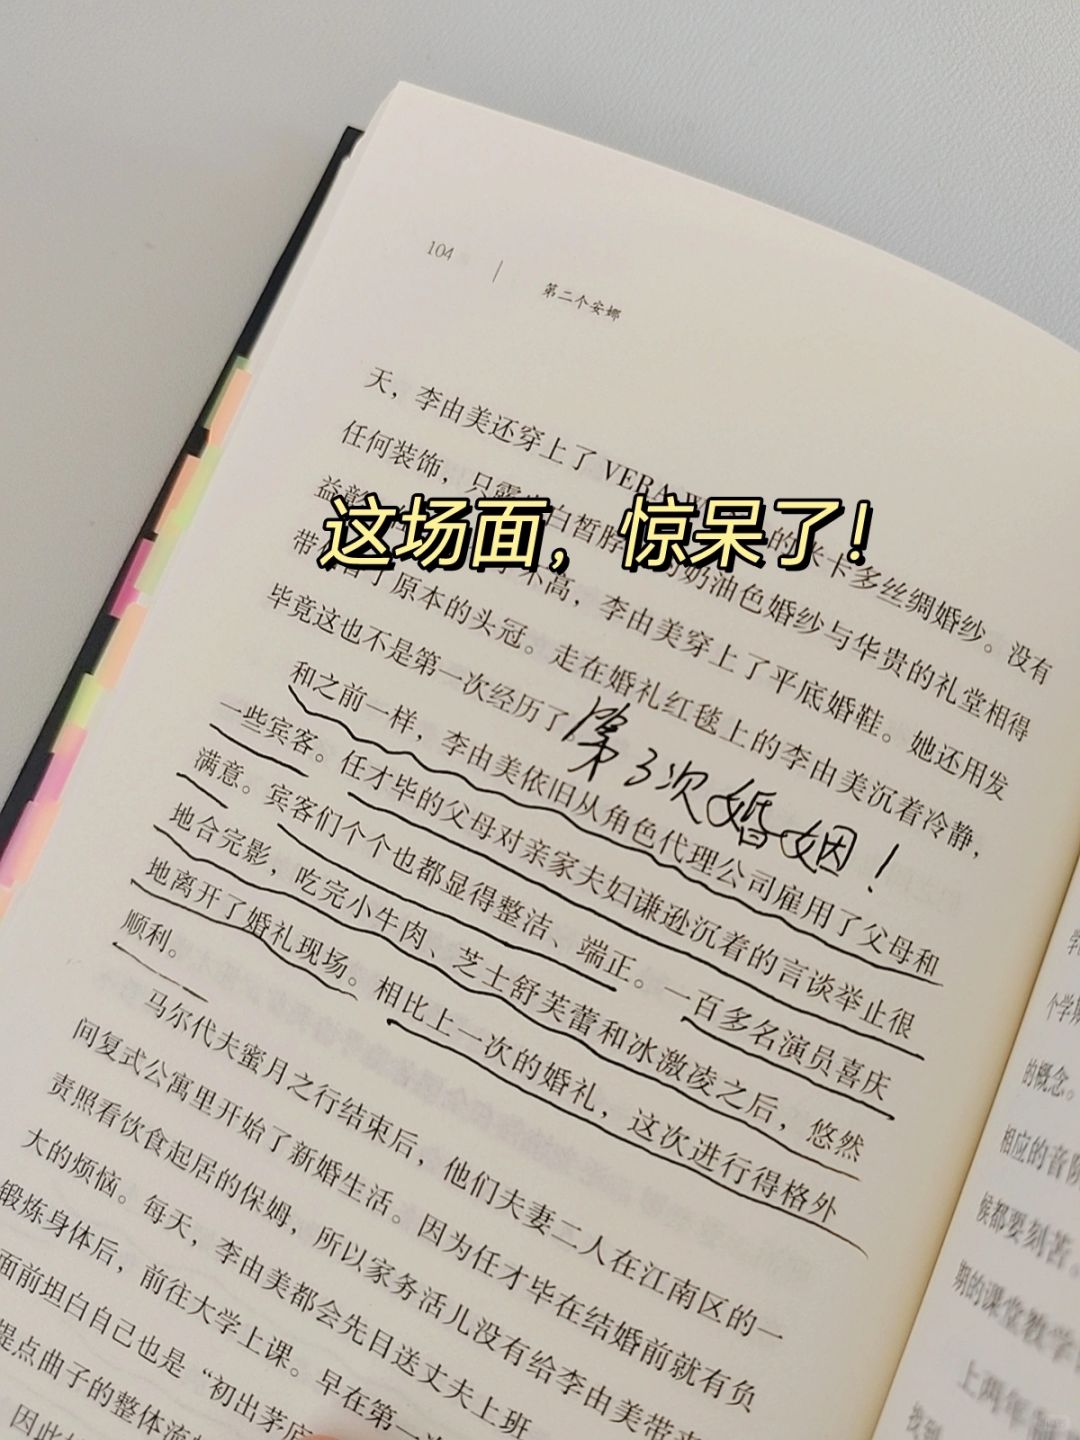 104
第二个安娜
天，李由美还穿上了 VERA 的米卡多丝绸婚纱。没有
任何装饰，只露 白皙脖 的奶油色婚纱与华贵的礼堂相得
益 不高，李由美穿上了平底婚鞋。她还用发
带 了原本的头冠。走在婚礼红毯上的李由美沉着冷静，
毕竟这也不是第一次经历了。
这场面，惊呆了!
第3次婚姻！
和之前一样，李由美依旧从角色代理公司雇用了父母和
一些宾客。任才毕的父母对亲家夫妇谦逊沉着的言谈举止很
满意。宾客们个个也都显得整洁、端正。一百多名演员喜庆
地合完影，吃完小牛肉、芝士舒芙蕾和冰激凌之后，悠然
地离开了婚礼现场。相比上一次的婚礼，这次进行得格外
顺利。
马尔代夫蜜月之行结束后，他们夫妻二人在江南区的一
间复式公寓里开始了新婚生活。因为任才毕在结婚前就有负
责照看饮食起居的保姆，所以家务活儿没有给李由美带来
大的烦恼。每天，李由美都会先目送丈夫上班
锻炼身体后，前往大学上课。早在第一
面前坦白自己也是“初出茅
提点曲子的整体流
因此
个学
的概念。
相应的音阶
候都要刻苦。
期的课堂教学
上两年制
找到